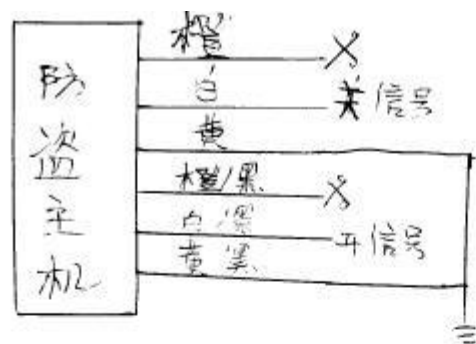 防盗主机
橙 X
白 关信号
黄
橙/黑 X
白/黑 开信号
黄黑